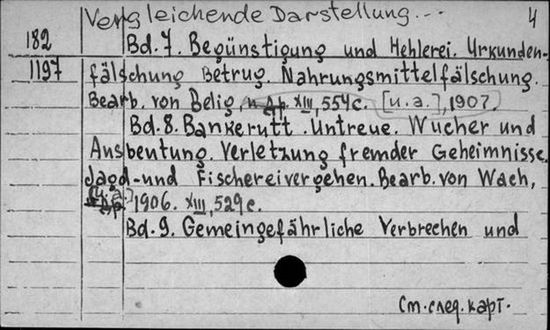 Vergleichende Darstellung... 4
182 Bd. 7. Begünstigung und Hehlerei. Urkunden-
1197 fälschung Betrug. Nahrungsmittelfälschung.
Bearb. von Belig, и др. XIII, 554 с. [u.a.], 1907.
Bd. 8. Bankerutt. Untreue. Wucher und
Ausbeutung. Verletzung fremder Geheimnisse.
Jagd- und Fischereivergehen. Bearb. von Wach,
[u.a.] 1906. XIII, 529 с.
Bd. 9. Gemeingefährliche Verbrechen und
См. след. карт.